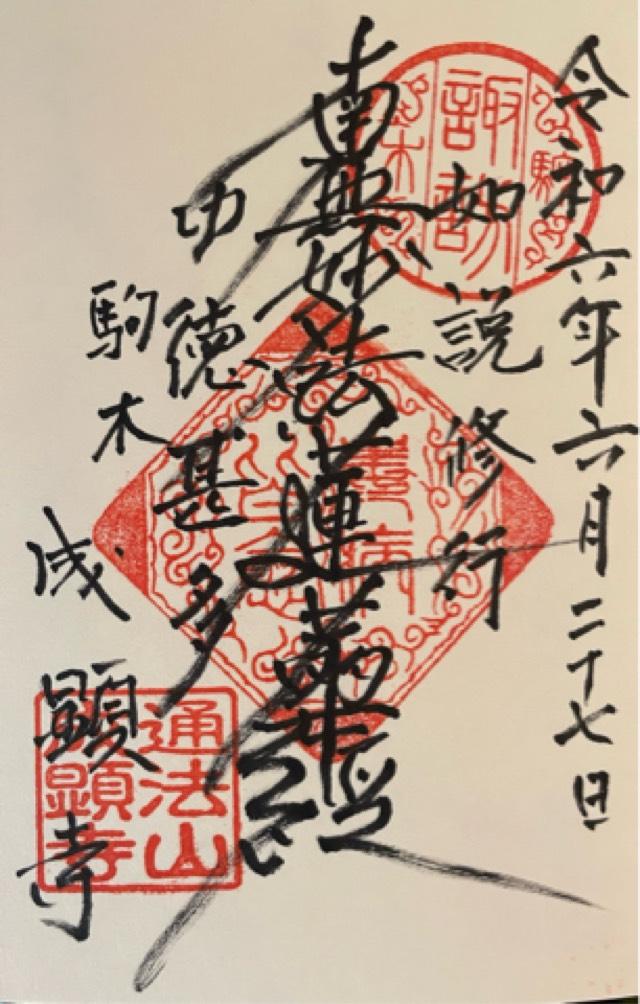 令和六年六月二十七日
如説修行
南無妙法蓮華經
功徳甚多
駒木
成顕寺
諏訪
通法山
顕寺